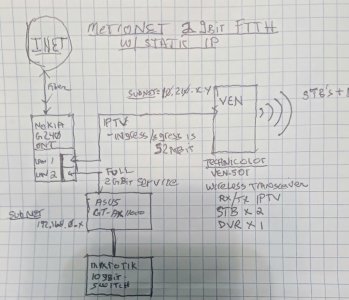 METRONET 2 gBit FTTH
W/ STATIC IP
INET
Fiber
NOKIA
ONT
LAN 1
LAN 2
IPTV
-INGRESS/EGRESS IS
SUBNET=
VEN
STB's +
FULL
2 GBit SERVICE
ASUS
GT-AX11000
SUBNET
TECHNICOLOR
VEN-501
WIRELESS TRANSCEIVER
RX/TX IPTV
STB x 2
DVR x 1
MIKROTIK
10 GBit
SWITCH